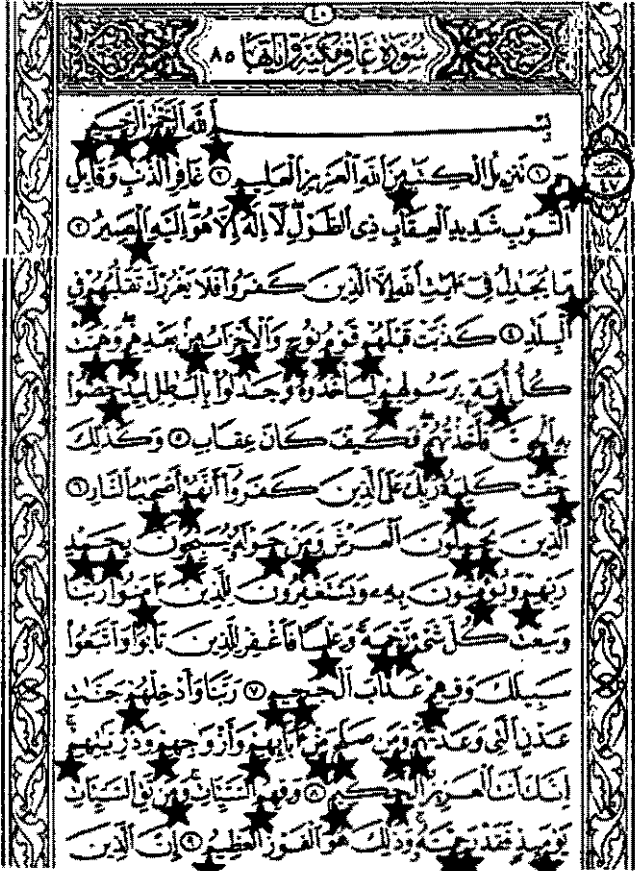 ٤٠
سُورَةُ غَافِرٍ مَكِّيَّةٌ وَآيَاتُهَا ٨٥
بِسْمِ ٱللَّهِ ٱلرَّحْمَٰنِ ٱلرَّحِيمِ
حمٓ ١ تَنزِيلُ ٱلْكِتَٰبِ مِنَ ٱللَّهِ ٱلْعَزِيزِ ٱلْعَلِيمِ ٢ غَافِرِ ٱلذَّنۢبِ وَقَابِلِ
٤٧
ٱلتَّوْبِ شَدِيدِ ٱلْعِقَابِ ذِى ٱلطَّوْلِ لَآ إِلَٰهَ إِلَّا هُوَ إِلَيْهِ ٱلْمَصِيرُ ٣
مَا يُجَٰدِلُ فِىٓ ءَايَٰتِ ٱللَّهِ إِلَّا ٱلَّذِينَ كَفَرُوا۟ فَلَا يَغْرُرْكَ تَقَلُّبُهُمْ فِى
ٱلْبِلَٰدِ ٤ كَذَّبَتْ قَبْلَهُمْ قَوْمُ نُوحٍ وَٱلْأَحْزَابُ مِنۢ بَعْدِهِمْ وَهَمَّتْ
كُلُّ أُمَّةٍۭ بِرَسُولِهِمْ لِيَأْخُذُوهُ وَجَٰدَلُوا۟ بِٱلْبَٰطِلِ لِيُدْحِضُوا۟
بِهِ ٱلْحَقَّ فَأَخَذْتُهُمْ فَكَيْفَ كَانَ عِقَابِ ٥ وَكَذَٰلِكَ
حَقَّتْ كَلِمَتُ رَبِّكَ عَلَى ٱلَّذِينَ كَفَرُوٓا۟ أَنَّهُمْ أَصْحَٰبُ ٱلنَّارِ ٦
ٱلَّذِينَ يَحْمِلُونَ ٱلْعَرْشَ وَمَنْ حَوْلَهُۥ يُسَبِّحُونَ بِحَمْدِ
رَبِّهِمْ وَيُؤْمِنُونَ بِهِۦ وَيَسْتَغْفِرُونَ لِلَّذِينَ ءَامَنُوا۟ رَبَّنَا
وَسِعْتَ كُلَّ شَىْءٍ رَّحْمَةً وَعِلْمًا فَٱغْفِرْ لِلَّذِينَ تَابُوا۟ وَٱتَّبَعُوا۟
سَبِيلَكَ وَقِهِمْ عَذَابَ ٱلْجَحِيمِ ٧ رَبَّنَا وَأَدْخِلْهُمْ جَنَّٰتِ
عَدْنٍ ٱلَّتِى وَعَدتَّهُمْ وَمَن صَلَحَ مِنْ ءَابَآئِهِمْ وَأَزْوَٰجِهِمْ وَذُرِّيَّٰتِهِمْ
إِنَّكَ أَنتَ ٱلْعَزِيزُ ٱلْحَكِيمُ ٨ وَقِهِمُ ٱلسَّيِّـَٔاتِ وَمَن تَقِ ٱلسَّيِّـَٔاتِ
يَوْمَئِذٍ فَقَدْ رَحِمْتَهُۥ وَذَٰلِكَ هُوَ ٱلْفَوْزُ ٱلْعَظِيمُ ٩ إِنَّ ٱلَّذِينَ